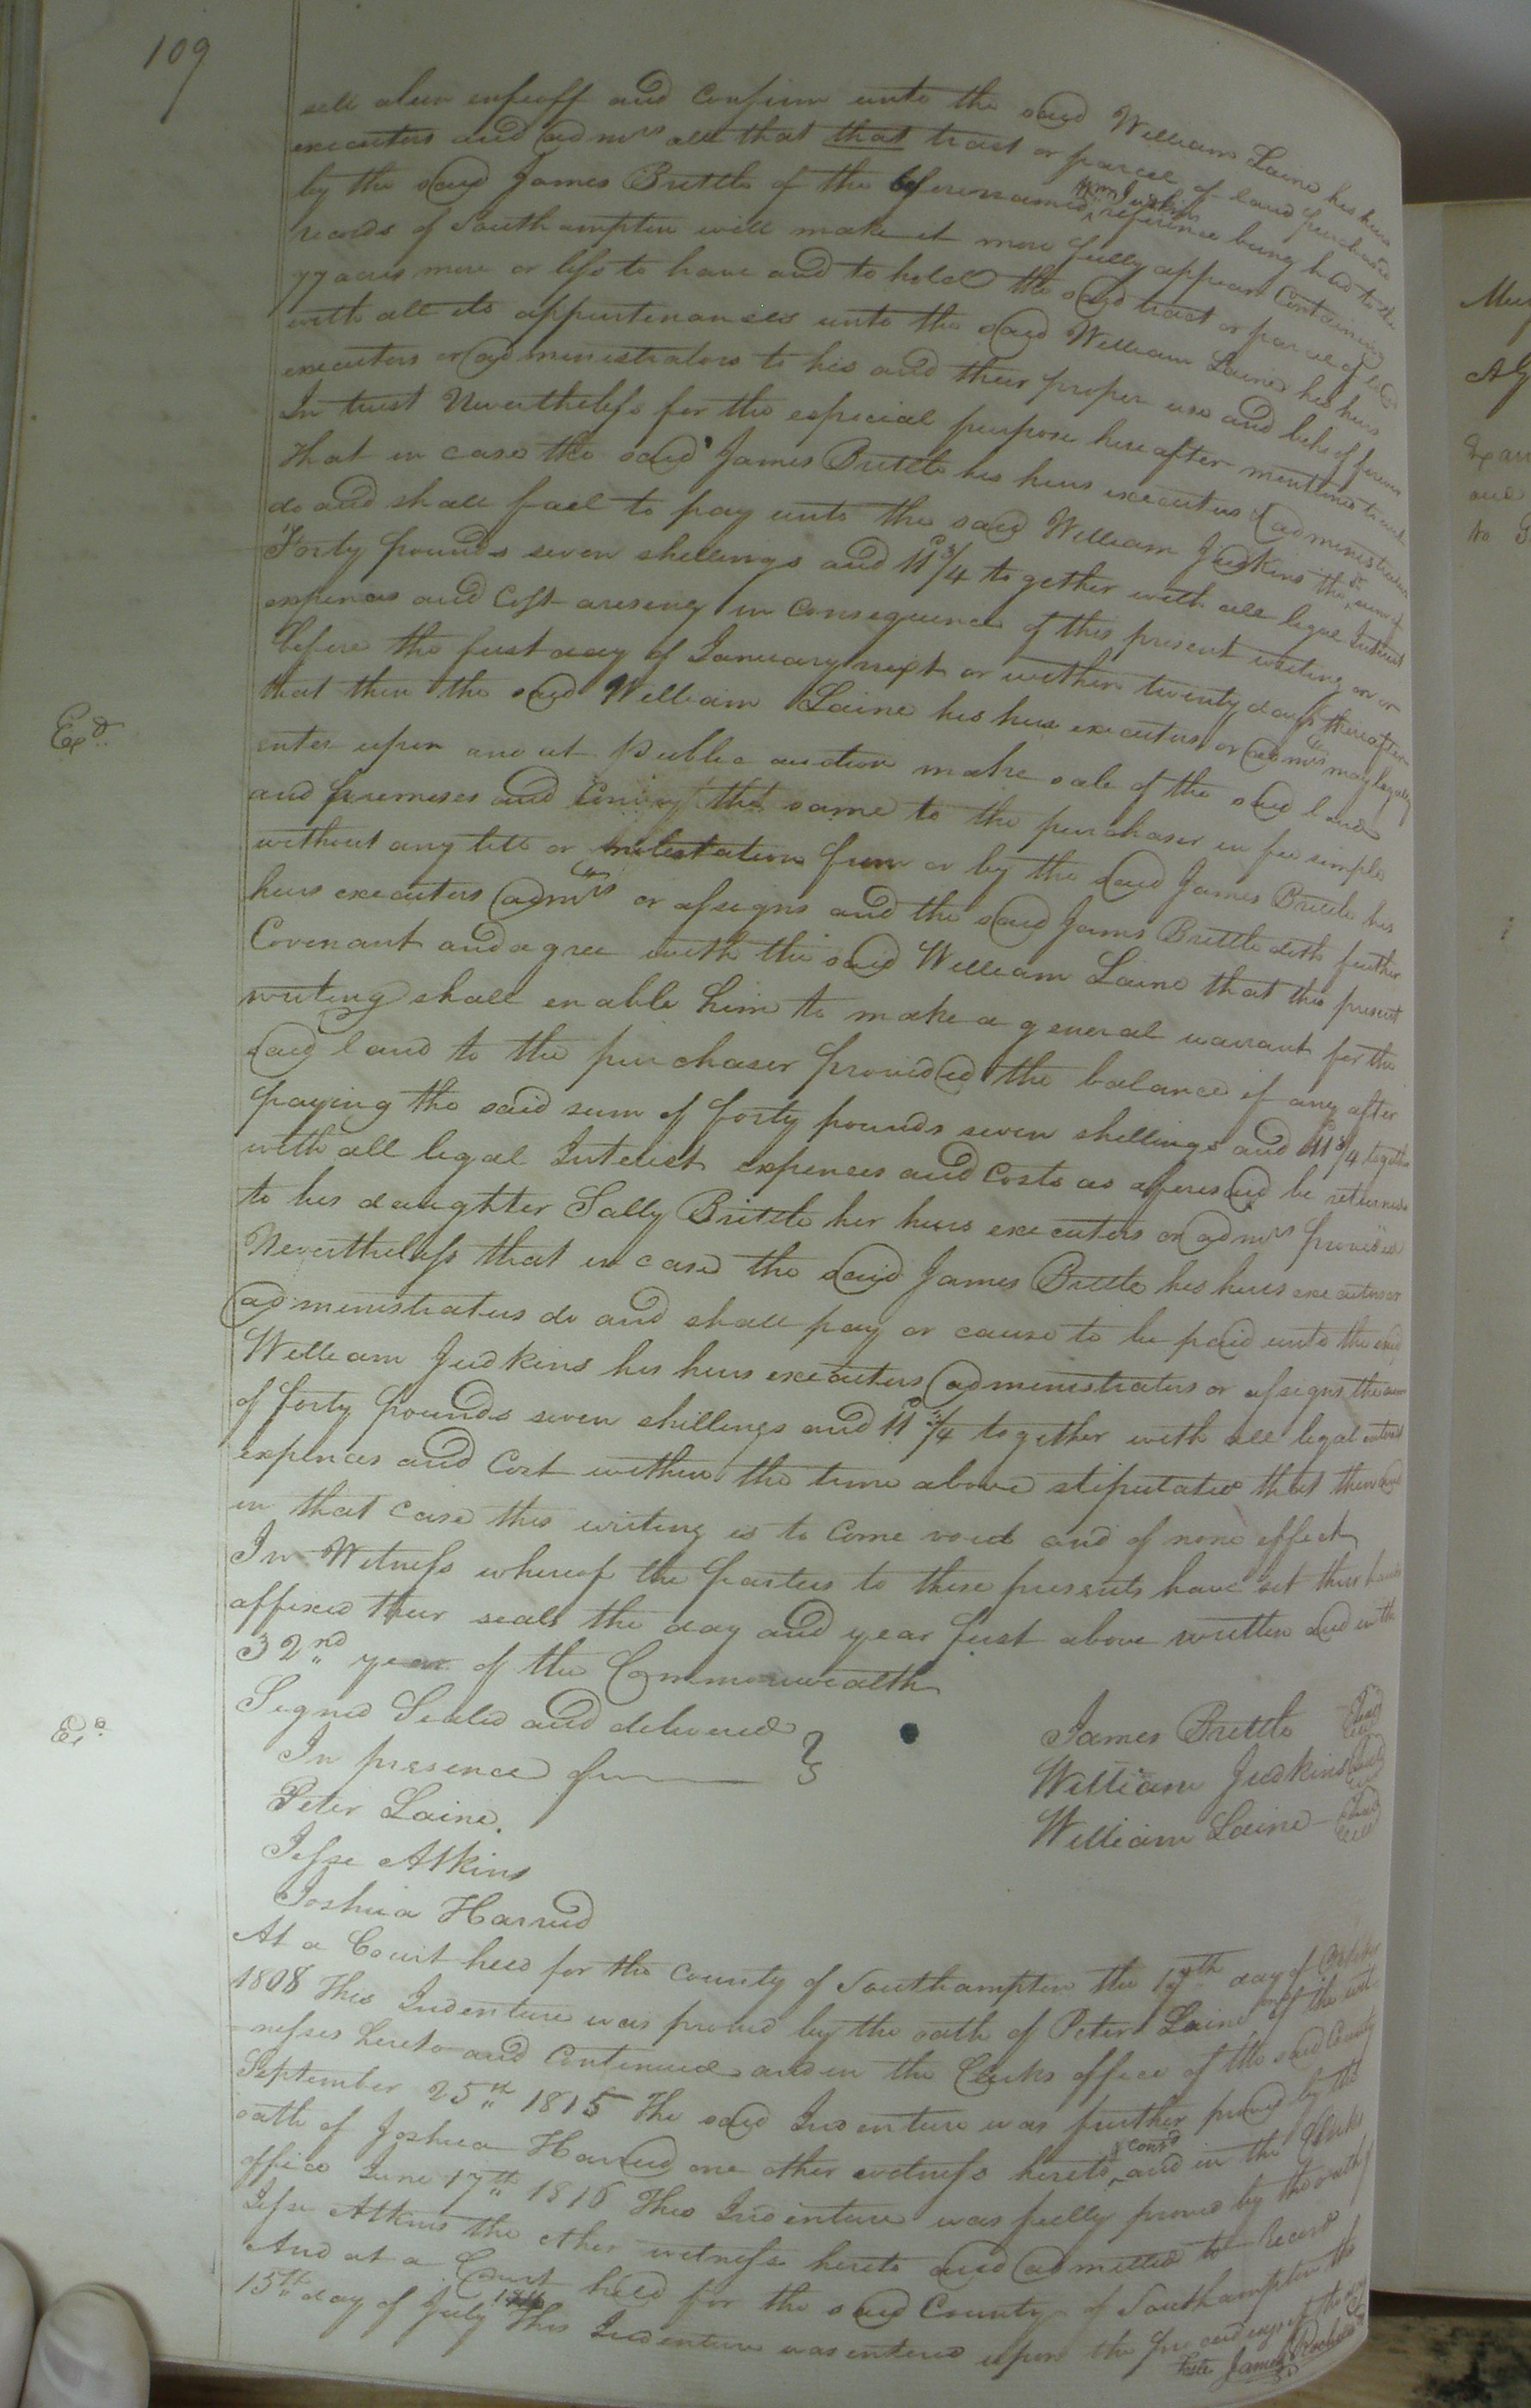 109
sell alien enfeoff and confirm unto the said William Laine his heirs
executors and admrs all that that tract or parcel of land purchased
by the said James Brittle of the beforenamed Wm Judkins reference being had to the
records of Southampton will make it more fully appear Containing
77 acres more or less to have and to hold the said tract or parcel of land
with all its appurtenances unto the said William Laine his heirs
executors or administrators to his and their proper use and behoof forever
In trust Nevertheless for the especial purpose hereafter mentioned to wit
that in case the said James Brittle his heirs executors administrators
do and shall fail to pay unto the said William Judkins the sd. sum of
Forty pounds seven shillings and 11d 3/4 together with all legal Interest
expences and Cost areseing in Consequence of this present writing on or
before the first day of January next or within twenty days thereafter
that then the said William Laine his heirs executors or admrs may legally
enter upon and at Public auction make sale of the said land
and premeses and Convey the same to the purchaser in fee simple
without any lett or molestation from or by the said James Brittle his
heirs executors admrs or assigns and the said James Brittle doth further
Covenant and agree with the said William Laine that this present
writing shall enable him to make a general warrant for the
said land to the purchaser provided the balance if any after
paying the said sum of forty pounds seven shellings and 11d 3/4 together
with all legal Interest expences and Costs as aforesaid be returned
to his daughter Sally Brittle her heirs executors or admrs provided
Nevertheless that in case the said James Brittle his heirs executors or
administrators do and shall pay or cause to be paid unto the said
William Judkins his heirs executors administrators or assigns the sum
of forty pounds seven shillings and 11d 3/4 together with all legal interest
expences and Cost within the time above stiputated that then and
in that case this writing is to Come void and of none effect
In Witness whereof the parties to these presents have set their hands
affixed their seals the day and year first above written and in the
32nd year of the Commonwealth
Signed Sealed and delivered
In presence of
James Brittle Seal
William Judkins Seal
William Laine Seal
Peter Laine.
Jesse Atkins
Joshua Harred
At a Court held for the County of Southampton the 17th day of October
1808 This Indenture was proved by the oath of Peter Laine one of the wit
nesses hereto and Continued and in the Clerks office of the said County
September 25th 1815 The said Indenture was further proved by the
oath of Joshua Harred one other witness hereto & contd and in the Clerks
office June 17th 1816 This Indenture was fully proved by the oath of
Jesse Atkins the other witness hereto and admitted to Record
And at a Court held for the said County of Southampton the
15th day of July 1816 This Indenture was entered upon the proceedings of the day
Teste James Rochelle
Exd.
Exd.